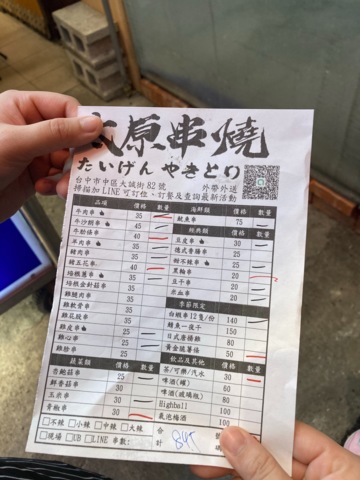 太原串燒
たいげん やきとり
台中市中區大誠街82號 外帶外送
掃描加LINE可訂位、訂餐及查詢最新活動
品項 價格 數量
牛肉串 35
牛沙朗串 45
牛筋條串 40
羊肉串 35
豬肉串
豬五花串 40
雞腿肉串
雞軟骨串
雞屁股串
雞皮串 25
雞心串 25
雞胗串 25
蔬菜類 價格 數量
杏鮑菇串 25
鮮香菇串 30
玉米串 30
青椒串 30
海鮮類 價格 數量
魷魚串 75
經典類 價格 數量
豆皮串 30
德式香腸串 25
甜不辣串 25
黑輪串 20
豆干串 20
米血串 20
季節限定
台椒串12隻/份 140
150
日式唐揚雞 80
黃金脆薯條 50
飲品及其他 價格 數量
茶/可樂/汽水 30
啤酒(罐) 60
啤酒(玻璃瓶) 80
Highball 100
氣泡梅酒 100
□不辣 □小辣 □中辣 □大辣
□現場 □UB □LINE 串數:
合計 845
號碼